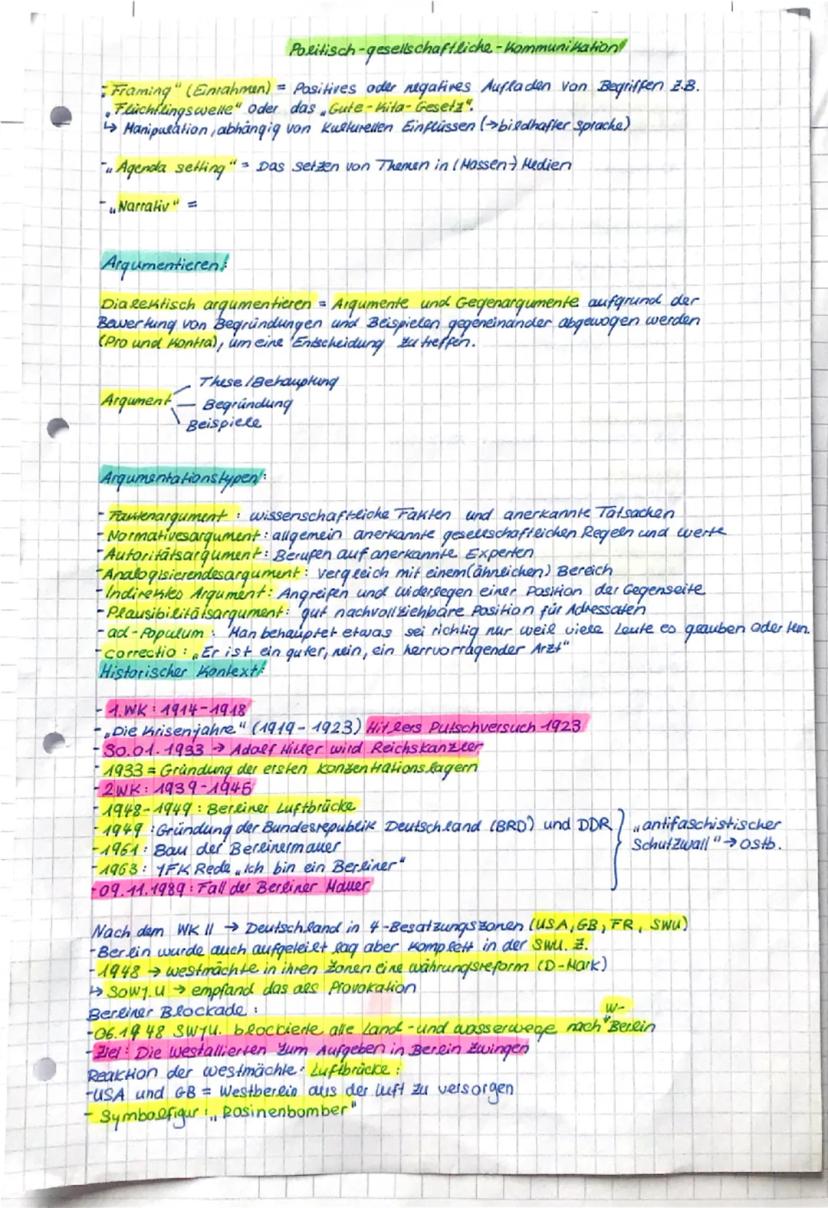 Politisch-gesellschaftliche-Kommunikation!
-„Framing" (Einrahmen) = Positives oder negatives Aufladen von Begriffen z.B.
„Flüchtlingswelle" oder das „Gute-Kita-Gesetz".
↳ Manipulation, abhängig von kulturellen Einflüssen (→bildhafter Sprache)
-„Agenda setting" = Das Setzen von Themen in (Massen-) Medien
-„Narrativ" =
Argumentieren:
Dialektisch argumentieren = Argumente und Gegenargumente aufgrund der
Bewertung von Begründungen und Beispielen gegeneinander abgewogen werden
(Pro und Kontra), um eine Entscheidung zu treffen.
These/Behauptung
Argument — Begründung
Beispiele
Argumentationstypen:
- Faktenargument: wissenschaftliche Fakten und anerkannte Tatsachen
- Normativesargument: allgemein anerkannte gesellschaftlichen Regeln und Werte
- Autoritätsargument: Berufen auf anerkannte Experten
- Analogisierendesargument: Vergleich mit einem (ähnlichen) Bereich
- Indirektes Argument: Angreifen und Widerlegen einer Position der Gegenseite
- Plausibilitätsargument: gut nachvollziehbare Position für Adressaten
- ad-Populum: Man behauptet etwas sei richtig nur weil viele Leute es glauben oder tun.
- correctio: „Er ist ein guter, nein, ein herrvorragender Arzt"
Historischer Kontext:
- 1.WK: 1914-1918
- „Die Krisenjahre" (1919-1923) Hitlers Putschversuch 1923
- 30.01.1933 → Adolf Hitler wird Reichskanzler
- 1933 = Gründung der ersten Konzentrationslagern
- 2WK: 1939-1945
- 1948-1949: Berliner Luftbrücke
- 1949: Gründung der Bundesrepublik Deutschland (BRD) und DDR } „antifaschistischer
- 1961: Bau der Berlinermauer Schutzwall" → Ostb.
- 1963: JFK Rede „Ich bin ein Berliner"
- 09.11.1989: Fall der Berliner Mauer
Nach dem WK II → Deutschland in 4-Besatzungszonen (USA, GB, FR, SWU)
- Berlin wurde auch aufgeteilt lag aber komplett in der SWU. Z.
- 1948 → Westmächte in ihren Zonen eine Währungsreform (D-Mark)
↳ Sowj.U → empfand das als Provokation
Berliner Blockade:
- 06.1948 SWJU. blockierte alle Land-und Wasserwege nach W-Berlin
- Ziel: Die Westallierten zum Aufgeben in Berlin zwingen
Reaktion der Westmächte: Luftbrücke:
- USA und GB = Westberlin aus der Luft zu versorgen
- Symbolfigur: „Rosinenbomber"